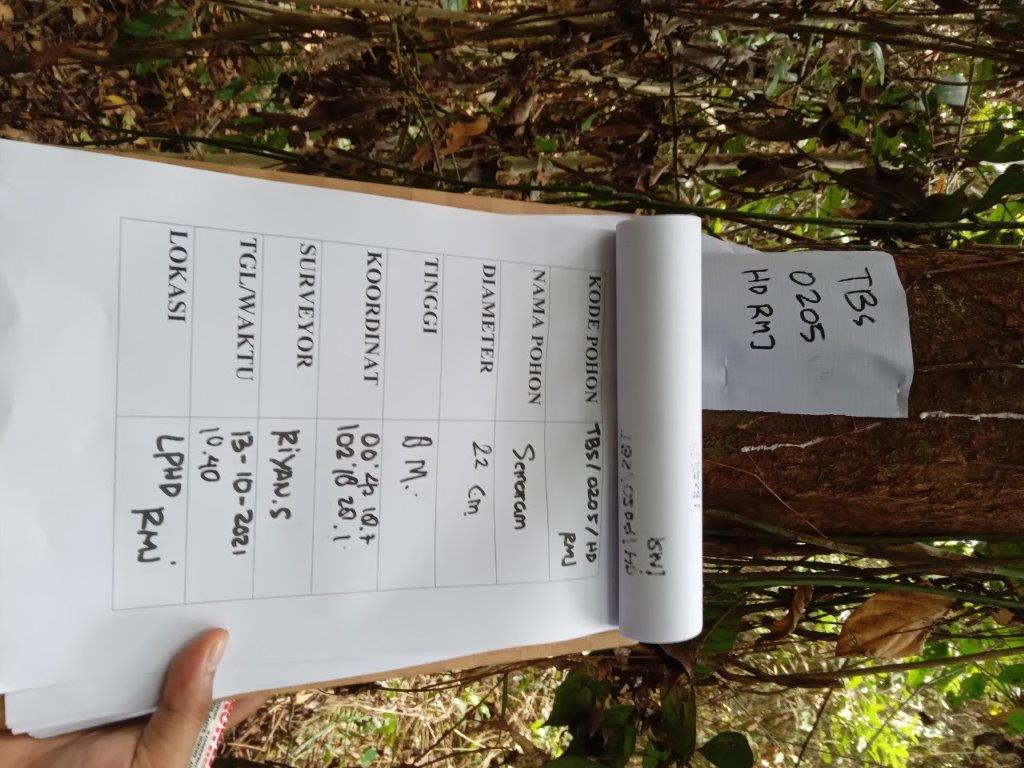 TBS
0205
HD RMJ
KODE POHON TBS/0205/HD
RMJ
NAMA POHON Semaram
DIAMETER 22 cm
TINGGI 8 M.
KOORDINAT 00°42 18.7
102°18 28.1
SURVEYOR RiYAN.S
TGL/WAKTU 13-10-2021
10.40
LOKASI LPHD RMJ